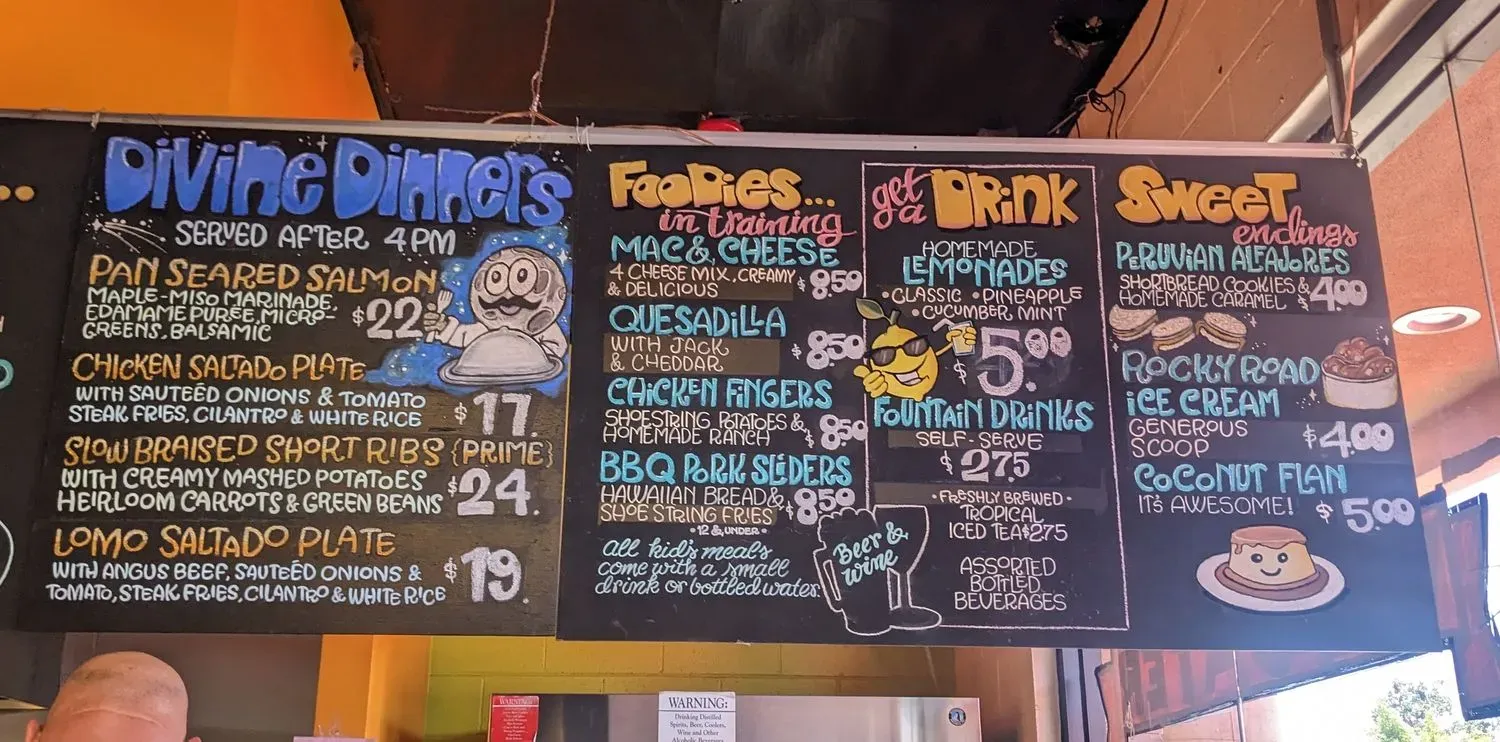 Divine Dinners
SERVED AFTER 4PM
PAN SEARED SALMON
MAPLE-MISO MARINADE,
EDAMAME PURÉE, MICRO-
GREENS, BALSAMIC
$22
CHICKEN SALTADO PLATE
WITH SAUTEÉD ONIONS & TOMATO
STEAK FRIES, CILANTRO & WHITE RICE
$17.
SLOW BRAISED SHORT RIBS {PRIME}
WITH CREAMY MASHED POTATOES
HEIRLOOM CARROTS & GREEN BEANS
$24.
LOMO SALTADO PLATE
WITH ANGUS BEEF, SAUTEÉD ONIONS &
TOMATO, STEAK FRIES, CILANTRO & WHITE RICE
$19.
FOODies...
in training
MAC & CHEESE
4 CHEESE MIX, CREAMY
& DELICIOUS
$8.50
QUESADILLA
WITH JACK
& CHEDDAR
$8.50
CHICKEN FINGERS
SHOESTRING POTATOES &
HOMEMADE RANCH
$8.50
BBQ PORK SLIDERS
HAWAIIAN BREAD &
SHOE STRING FRIES
$8.50
• 12 & UNDER •
All kid's meals
come with a small
drink or bottled water.
Beer &
wine
get a DRINK
HOMEMADE
LEMONADES
• CLASSIC • PINEAPPLE
• CUCUMBER, MINT
$5.00
FOUNTAIN DRINKS
SELF-SERVE
$2.75
• FRESHLY BREWED •
TROPICAL
ICED TEA $2.75
ASSORTED
BOTTLED
BEVERAGES
SWEET
endings
PERUVIAN ALFAJORES
SHORTBREAD COOKIES &
HOMEMADE CARAMEL
$4.00
ROCKY ROAD
ICE CREAM
GENEROUS
SCOOP
$4.00
COCONUT FLAN
IT'S AWESOME!
$5.00
WARNING:
WARNING:
Drinking Distilled
Spirits, Beer, Coolers,
Wine and Other
Alcoholic Beverages